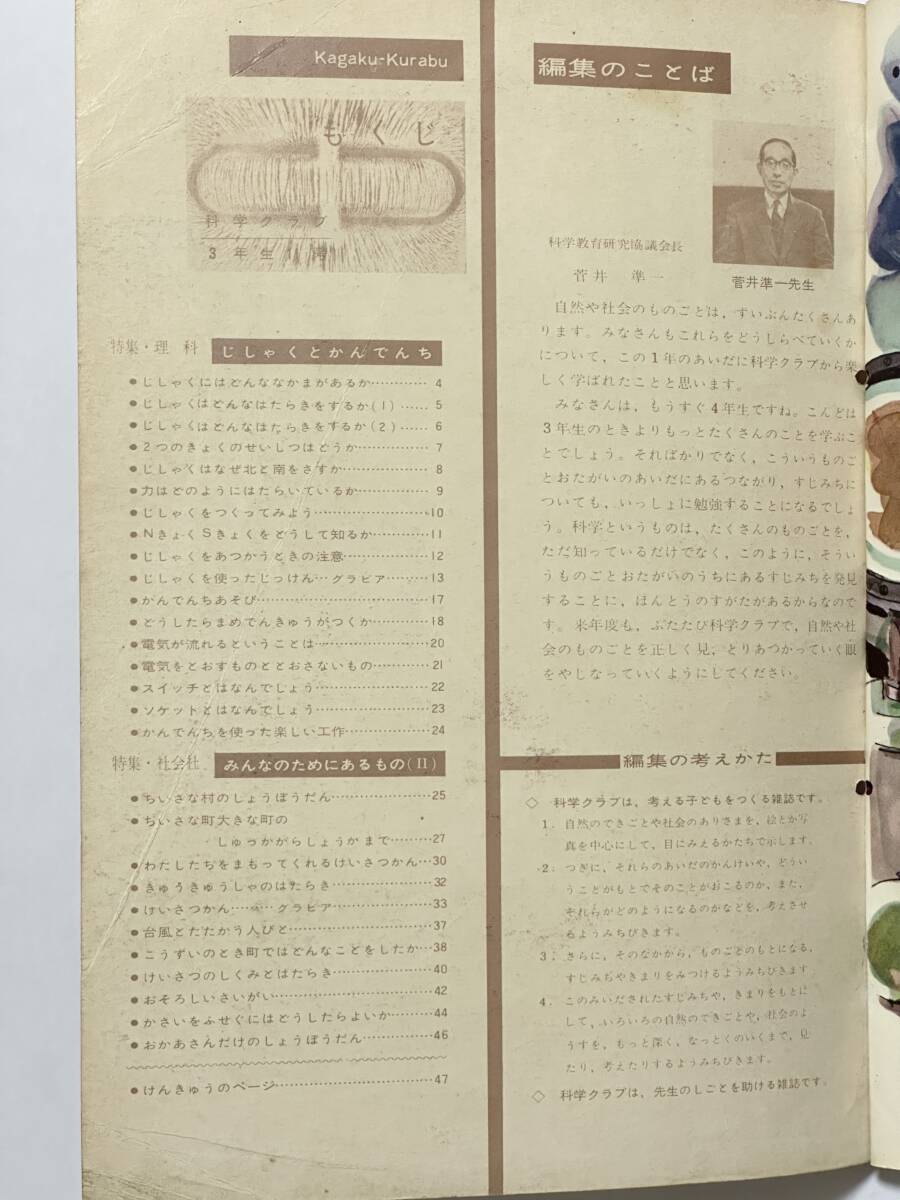 Kagaku-Kurabu
もくじ
科学クラブ
3年生1
特集・理科
じしゃくとかんでんち
●じしゃくにはどんななかまがあるか…………4
●じしゃくはどんなはたらきをするか(1)……5
●じしゃくはどんなはたらきをするか(2)……6
●2つのきょくのせいしつはどうか…………7
●じしゃくはなぜ北と南をさすか…………8
●力はどのようにはたらいているか…………9
●じしゃくをつくってみよう…………10
●NきょくSきょくをどうして知るか…………11
●じしゃくをあつかうときの注意…………12
●じしゃくを使ったじっけん…グラビア…………13
●かんでんちあそび…………17
●どうしたらまめでんきゅうがつくか…………18
●電気が流れるということは…………20
●電気をとおすものととおさないもの…………21
●スイッチとはなんでしょう…………22
●ソケットとはなんでしょう…………23
●かんでんちを使った楽しい工作…………24
特集・社会社
みんなのためにあるもの(II)
●ちいさな村のしょうぼうだん…………25
●ちいさな町大きな町の
しゅっかからしょうかまで…………27
●わたしたちをまもってくれるけいさつかん…30
●きゅうきゅうしゃのはたらき…………32
●けいさつかん………グラビア…………33
●台風とたたかう人びと…………37
●こうずいのとき町ではどんなことをしたか…38
●けいさつのしくみとはたらき…………40
●おそろしいさいがい…………42
●かさいをふせぐにはどうしたらよいか…………44
●おかあさんだけのしょうぼうだん…………46
●けんきゅうのページ…………47
編集のことば
科学教育研究協議会長
菅井 準一
菅井準一先生
自然や社会のものごとは，ずいぶんたくさんあ
ります。みなさんもこれらをどうしらべていくか
について，この1年のあいだに科学クラブから楽
しく学ばれたことと思います。
みなさんは，もうすぐ4年生ですね。こんどは
3年生のときよりもっとたくさんのことを学ぶこ
とでしょう。そればかりでなく，こういうものご
とおたがいのあいだにあるつながり，すじみちに
ついても，いっしょに勉強することになるでしょ
う。科学というものは，たくさんのものごとを，
ただ知っているだけでなく，このように，そうい
うものごとおたがいのうちにあるすじみちを発見
することに，ほんとうのすがたがあるからなので
す。来年度も，ふたたび科学クラブで，自然や社
会のものごとを正しく見，とりあつかっていく眼
をやしなっていくようにしてください。
編集の考えかた
◇ 科学クラブは，考える子どもをつくる雑誌です。
1. 自然のできごとや社会のありさまを，絵とか写
真を中心にして，目にみえるかたちで示します。
2. つぎに，それらのあいだのかんけいや，どうい
うことがもとでそのことがおこるのか，また，
それらがどのようになるのかなどを，考えさせ
るようみちびきます。
3. さらに，そのなかから，ものごとのもとになる，
すじみちやきまりをみつけるようみちびきます
4. このみいだされたすじみちや，きまりをもとに
して，いろいろの自然のできごとや，社会のよ
うすを，もっと深く，なっとくのいくまで，見
たり，考えたりするようみちびきます。
◇ 科学クラブは，先生のしごとを助ける雑誌です。